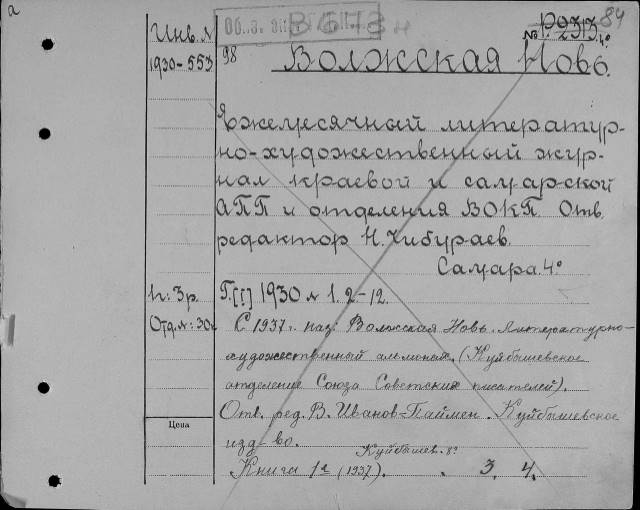 а
84
В 573 н
№ Р. 2313 4°
Инв. №
98 Волжская Новь.
1930-553
Ежемесячный литератур-
но-художественный жур-
нал краевой и самарской
АПП и отделения ВОКП. Отв.
редактор Н. Чибураев.
Самара. 4°
ц: 3р. Г. [I] 1930 № 1. 2-12.
Отд. №: 30к С 1937 г. наз: Волжская Новь. Литературно-
художественный альманах. (Куйбышевское
отделение Союза Советских писателей).
Отв. ред. В. Иванов-Паймен. Куйбышевское
Цена
изд-во.
Куйбышев. 8°
Книга 1-2 (1937). . 3. 4.